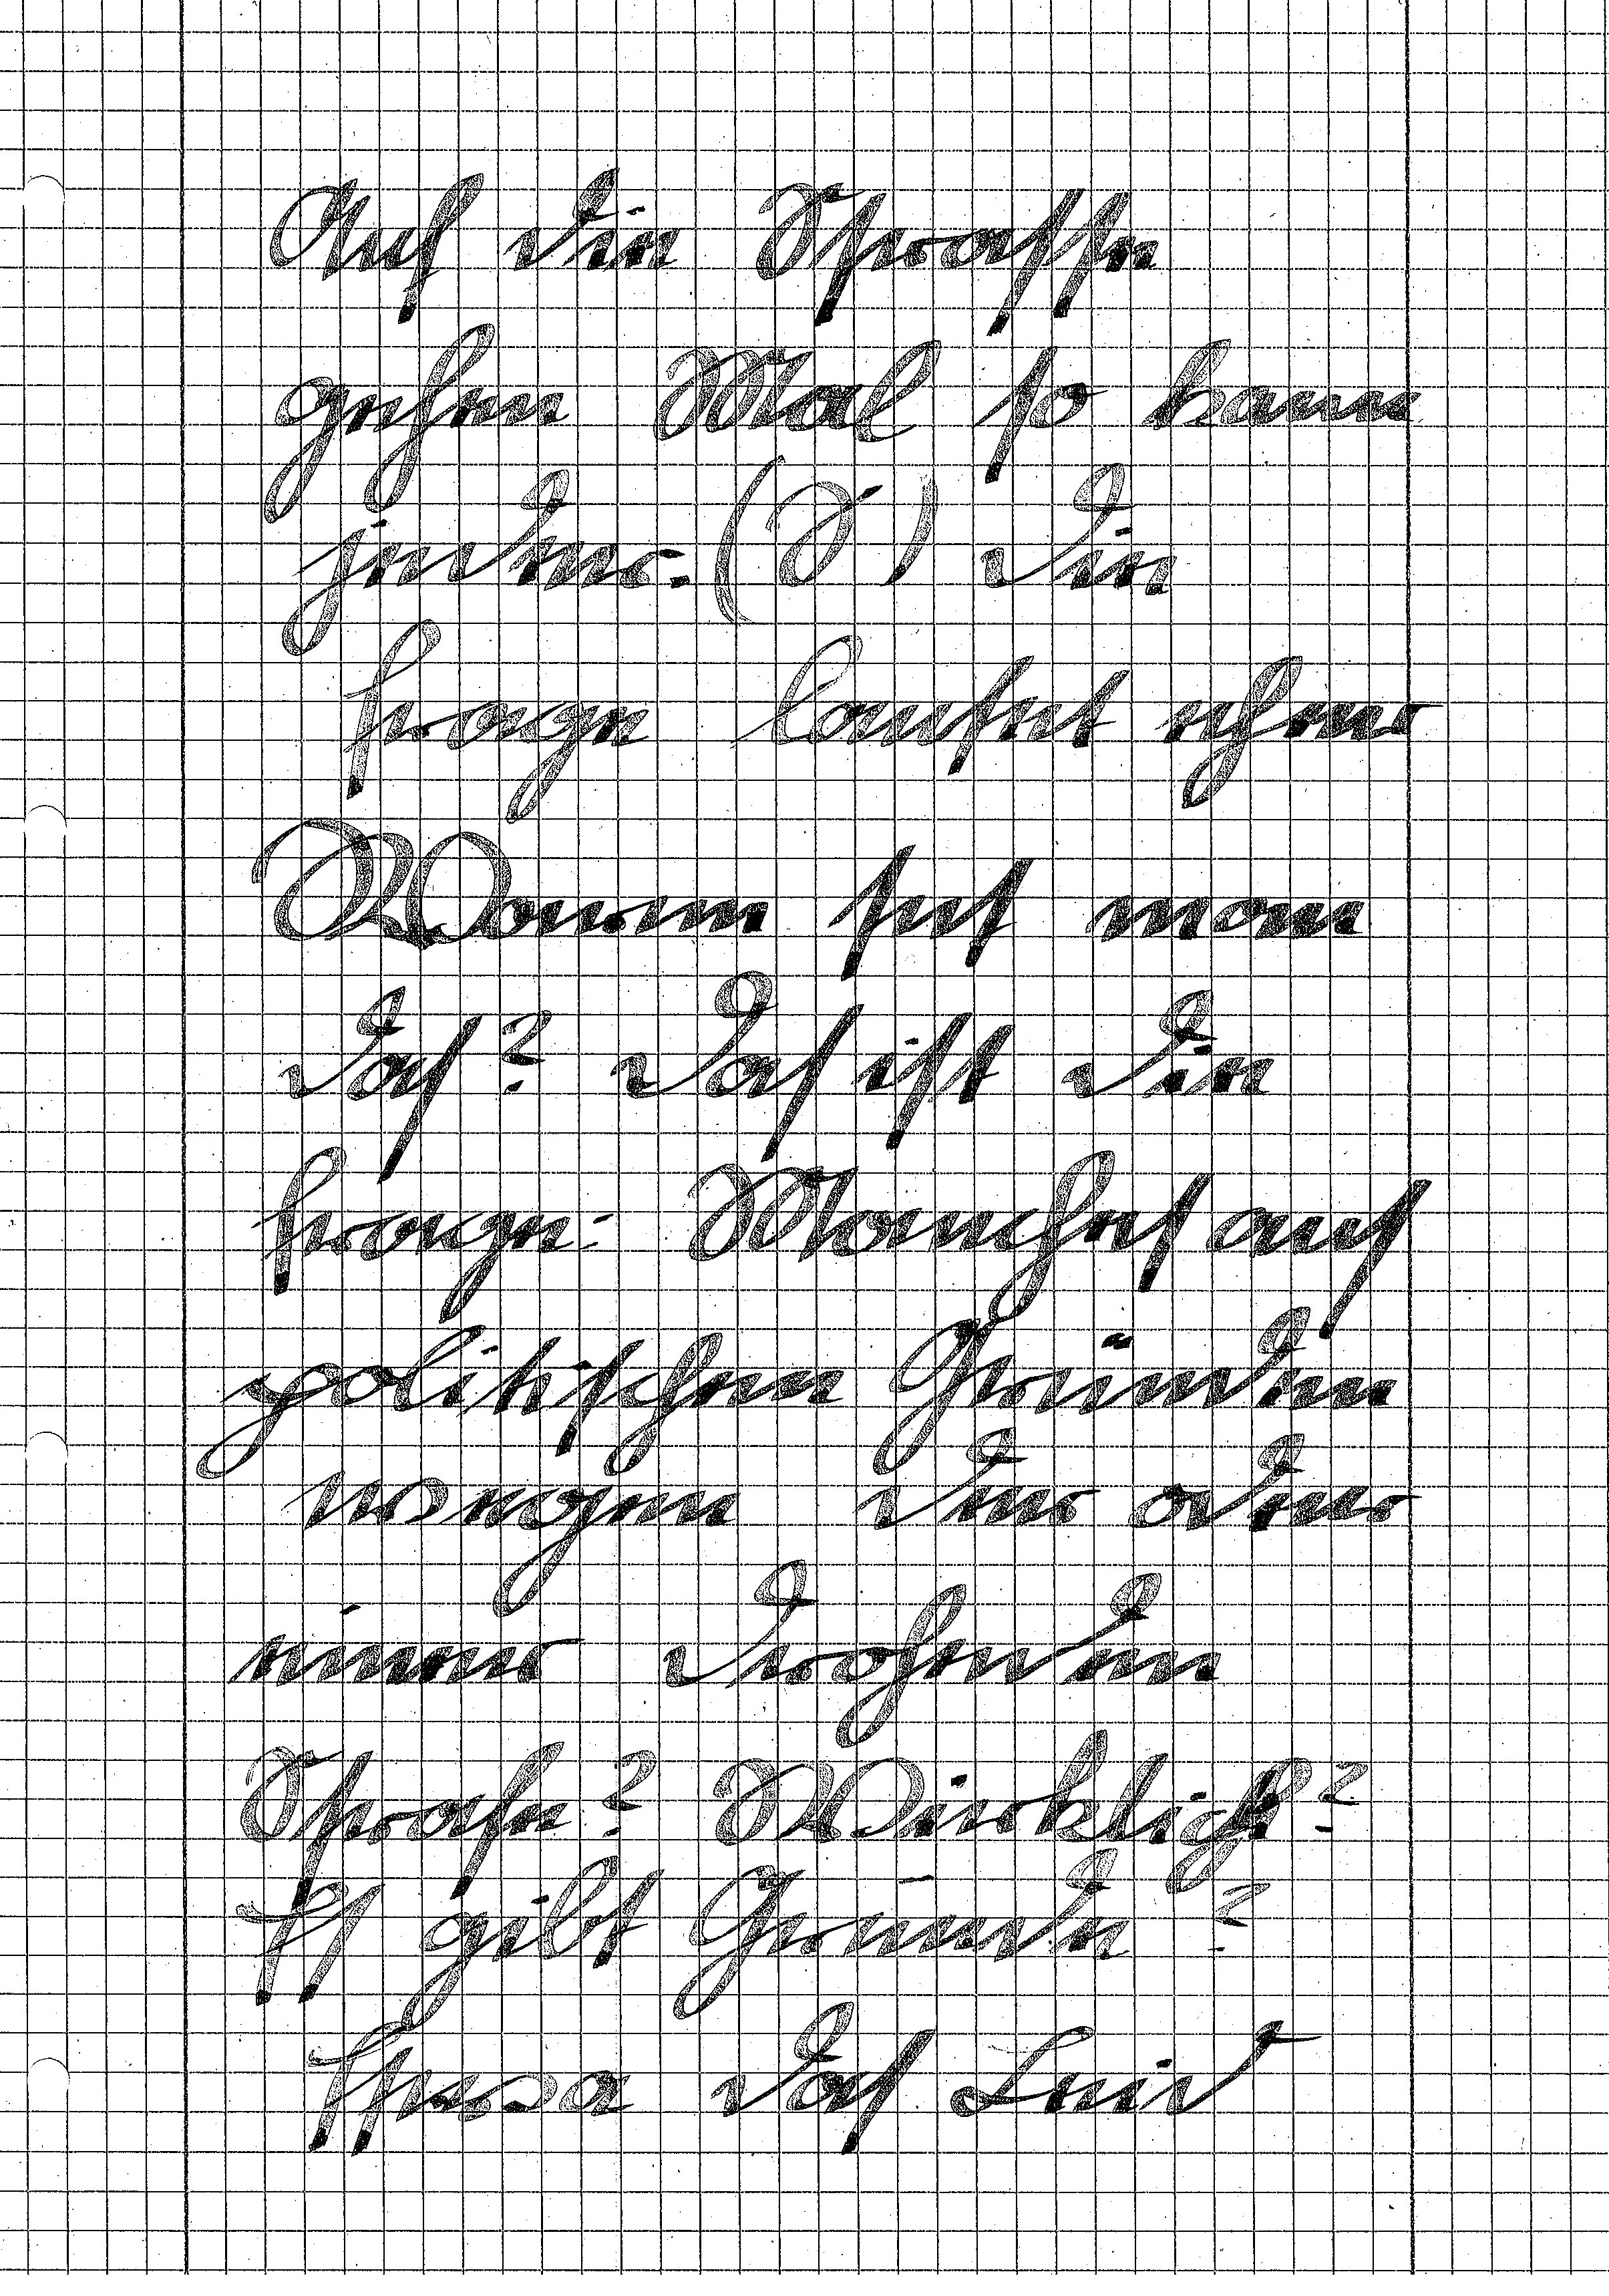 Auf die Strasse
gehen Mal so kann
jeder: (J) die
frage lautet eher
Warum tut man
das? das ist die
frage: Manches aus
politischen Gründen
wegen der oder
einer drohenden
Strafe? Wirklich?
Es gibt Gründe?
Etwa das Leid